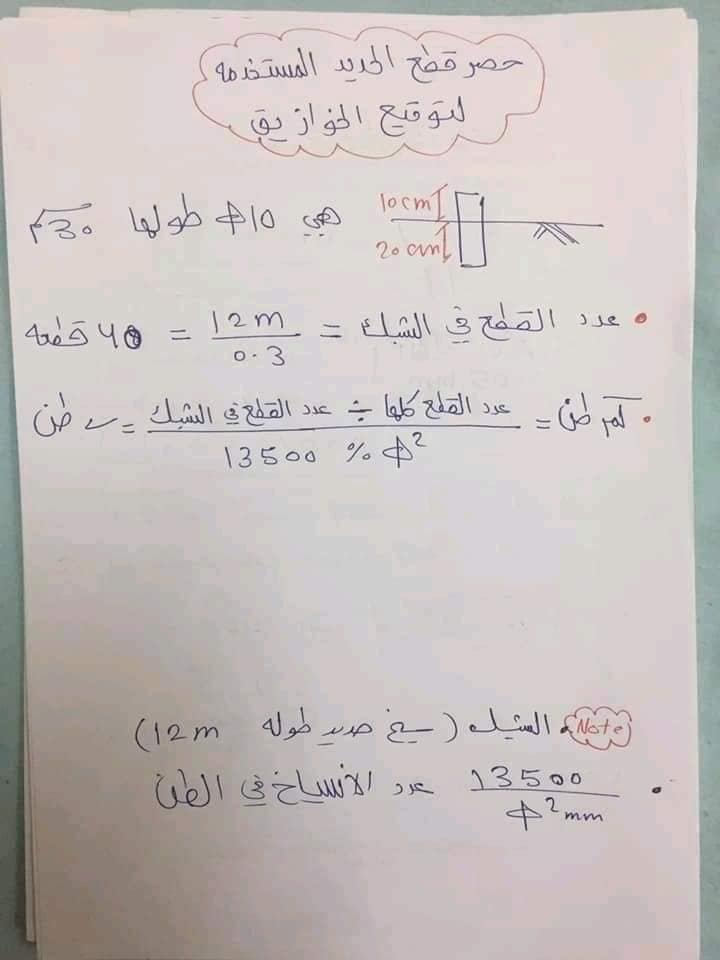 حصر قطع الحديد المستخدمه
لتوقيع الخوازيق
10cm
20cm
هي Φ10 طولها 30سم
• عدد القطع في الشبك = 12m / 0.3 = 40 قطعه
• كم طن = عدد القطع كلها ÷ عدد القطع في الشبك / 13500 % Φ² = طن
Note
الشبك (سيخ حديد طوله 12m)
• 13500 / Φ² mm عدد الأسياخ في الطن